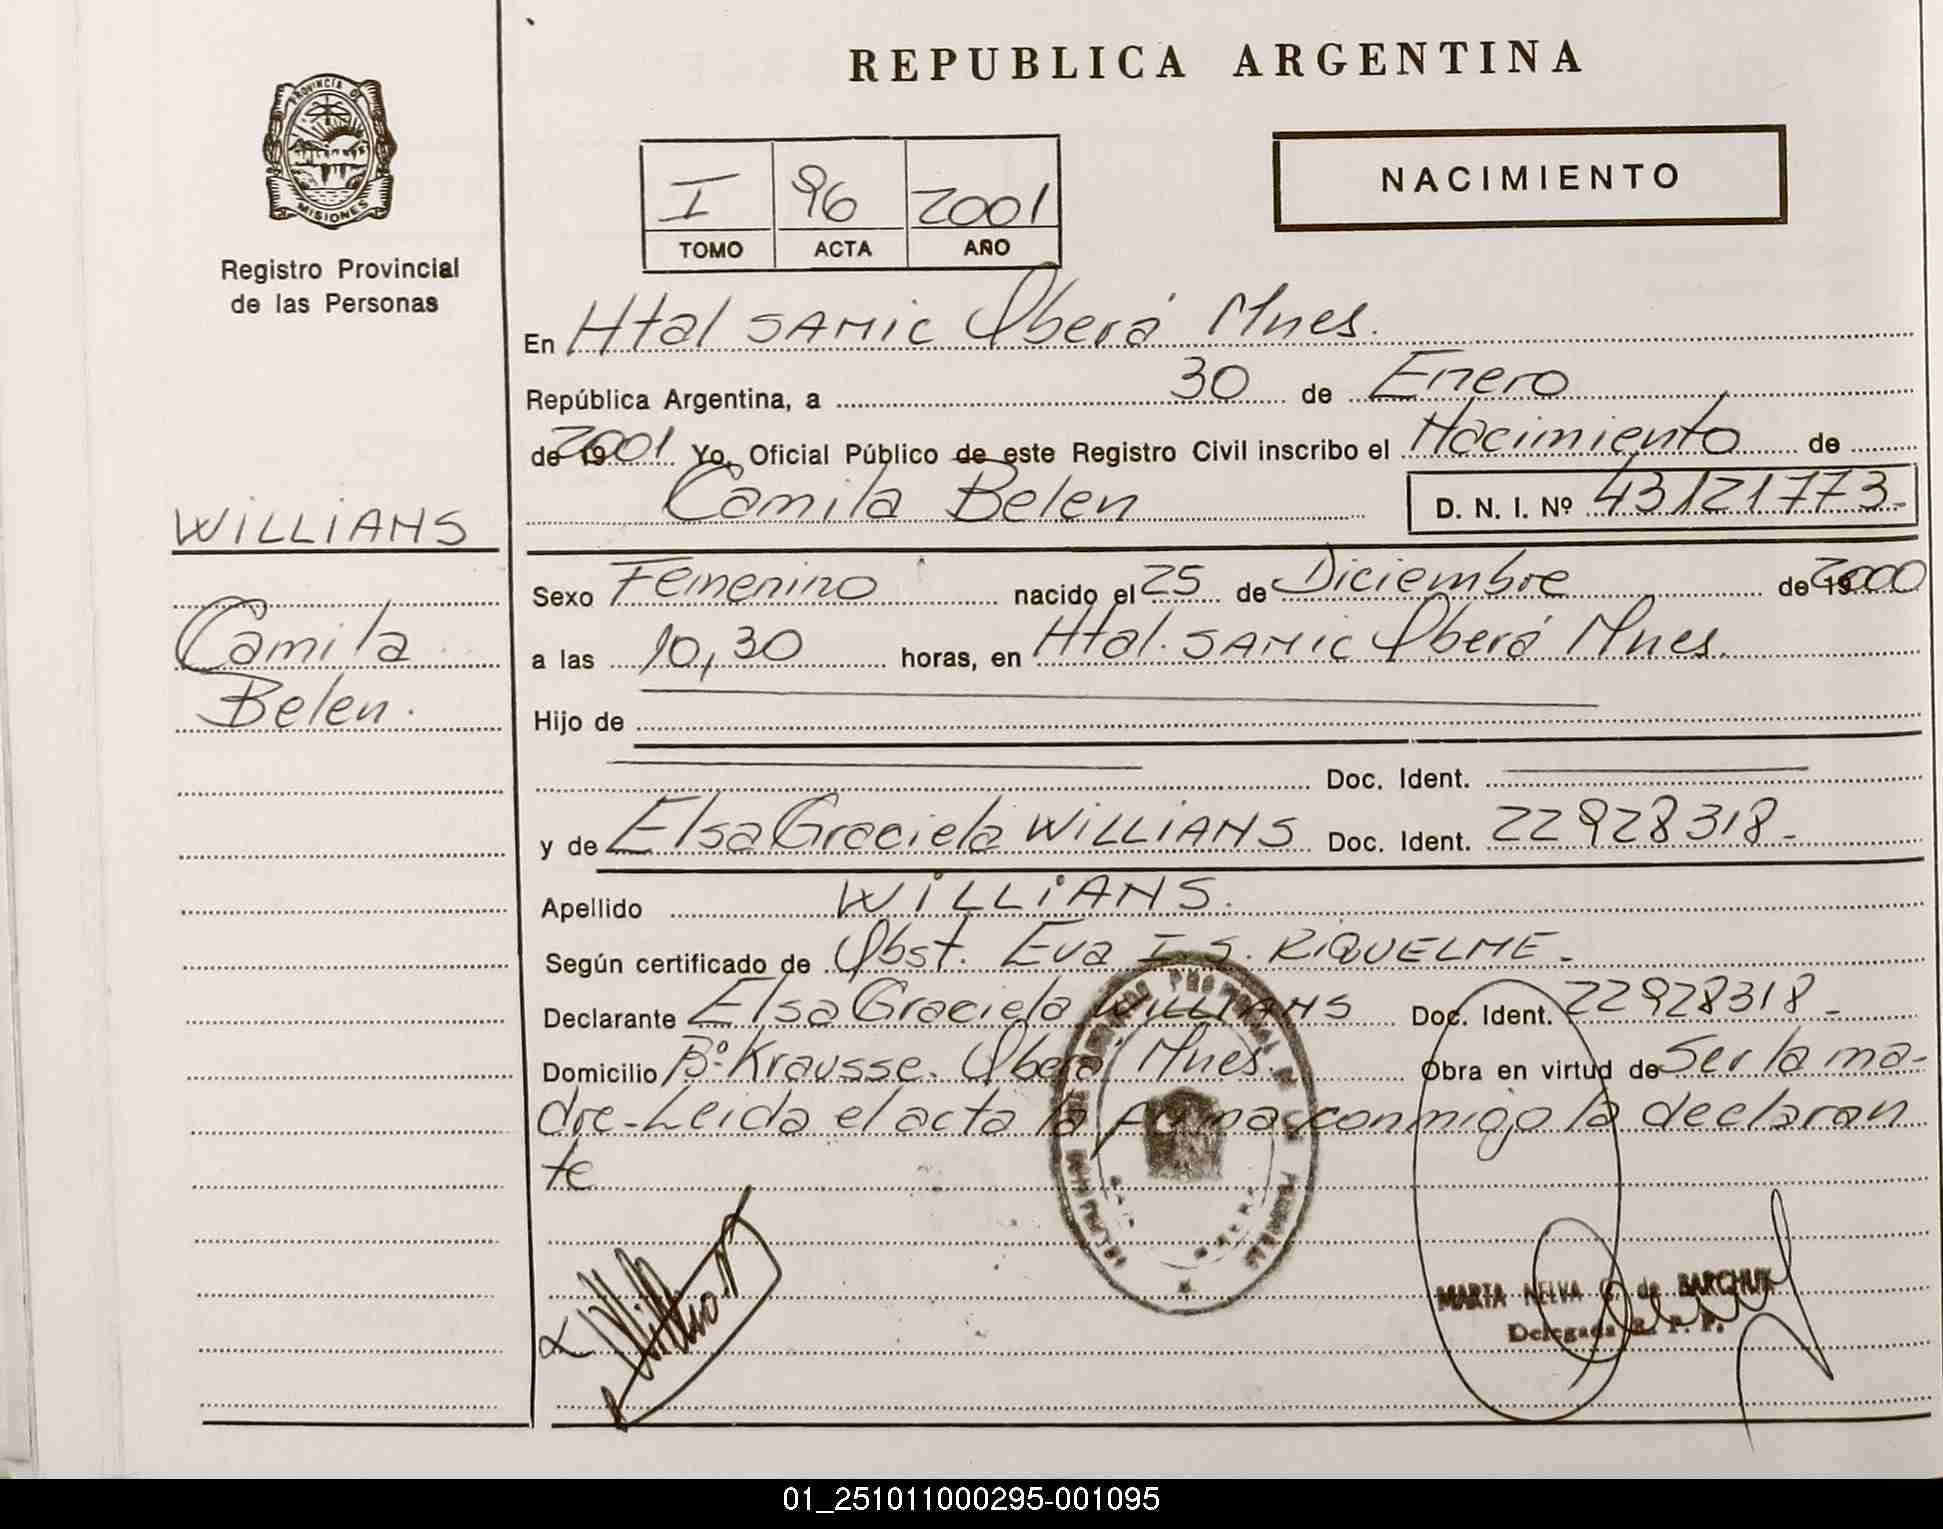 REPUBLICA ARGENTINA
PROVINCIA DE
MISIONES
Registro Provincial
de las Personas
I 96 2001
TOMO ACTA AÑO
NACIMIENTO
En Htal SAMIC Oberá Mnes.
República Argentina, a 30 de Enero
de 2001 Yo, Oficial Público de este Registro Civil inscribo el Nacimiento de
Camila Belen D. N. I. Nº 43121773.-
WILLIANS
Camila
Belen.
Sexo Femenino nacido el 25 de Diciembre de 2000
a las 10,30 horas, en Htal. SAMIC Oberá Mnes.
Hijo de
Doc. Ident.
y de Elsa Graciela WILLIANS Doc. Ident. 22928318.-
Apellido WILLIANS.
Según certificado de Obst. Eva I. S. RIQUELME.-
Declarante Elsa Graciela WILLIANS Doc. Ident. 22928318.-
Domicilio Bº Krausse. Oberá Mnes. Obra en virtud de Ser la ma-
dre.-Leida el acta la firma conmigo la declaran
te
MARTA NELVA G. de BARCHUK
Delegada R. P. P.
01_251011000295-001095